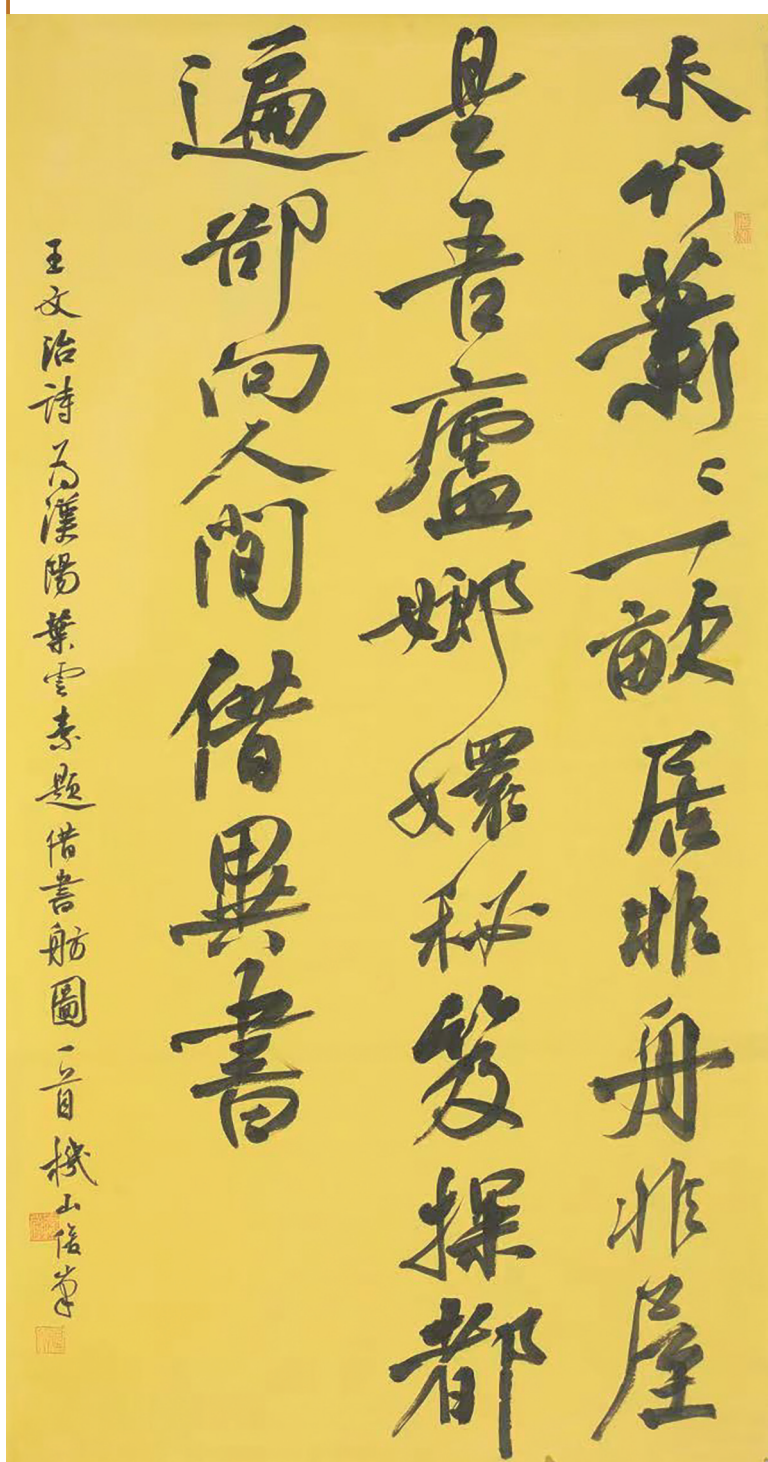 水竹蕭〻一畝居非舟非屋
是吾廬嫏嬛秘笈探都
遍卻向人間借異書
王文治詩為漢陽葉雲素題借書舫圖一首 機山俊筆